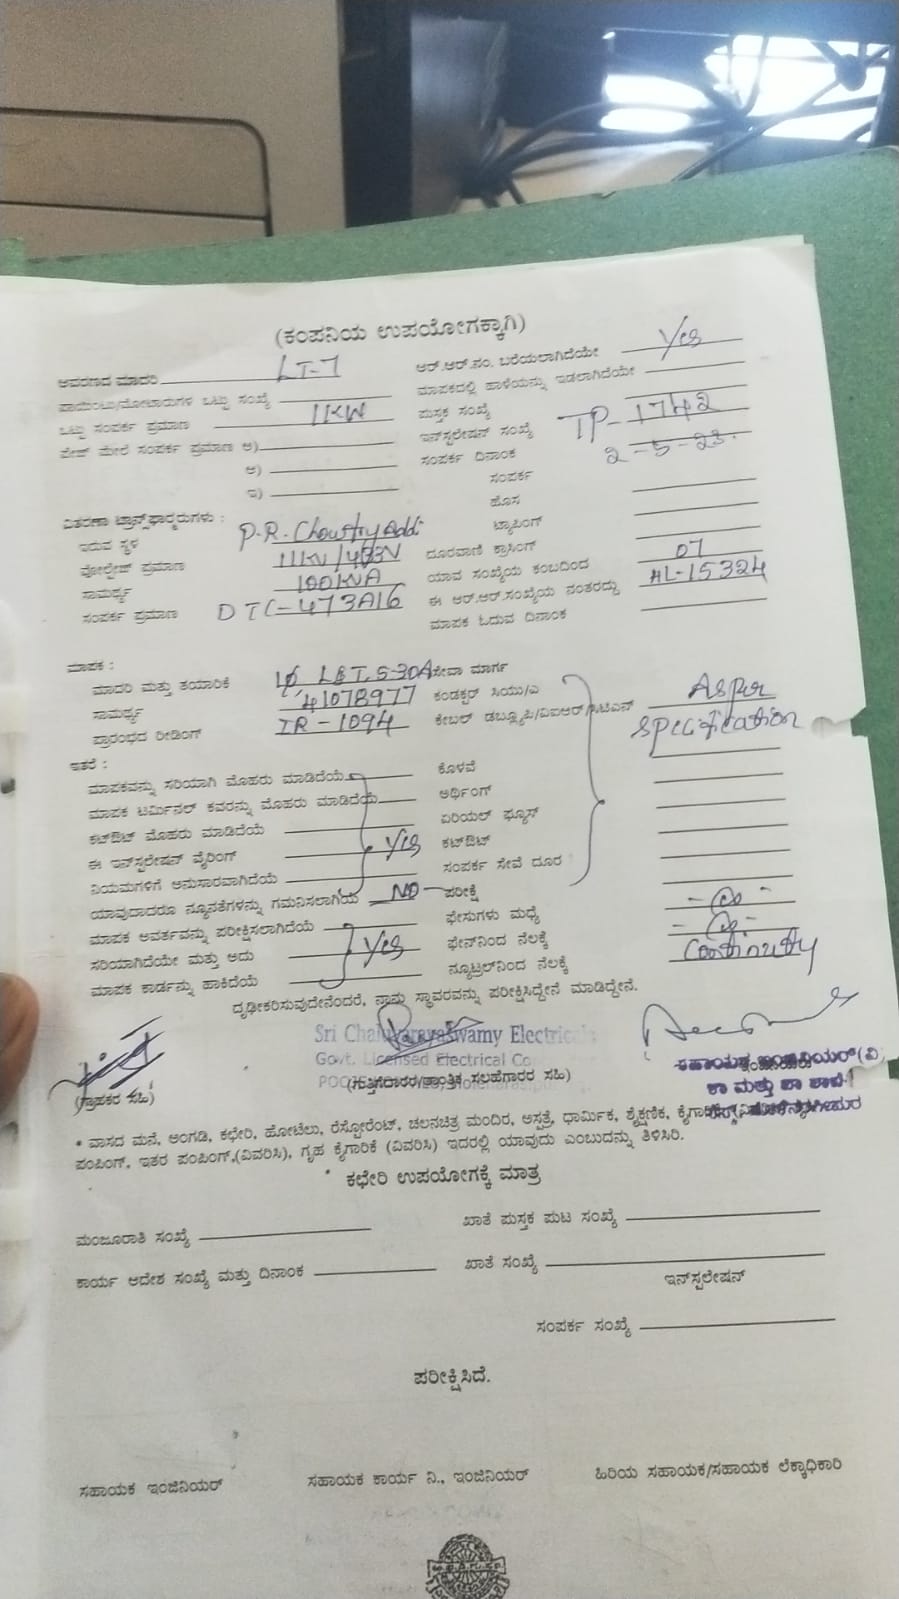 (ಕಂಪನಿಯ ಉಪಯೋಗಕ್ಕಾಗಿ)
ಆವರಣದ ಮಾದರಿ LT-7
ಆರ್.ಆರ್.ನಂ. ಬರೆಯಲಾಗಿದೆಯೇ Yes
ಪಾಯಿಂಟು/ಮೋಟಾರುಗಳ ಒಟ್ಟು ಸಂಖ್ಯೆ
ಮಾಪಕದಲ್ಲಿ ಹಾಳೆಯನ್ನು ಇಡಲಾಗಿದೆಯೇ
ಒಟ್ಟು ಸಂಪರ್ಕ ಪ್ರಮಾಣ 11KW
ಪುಸ್ತಕ ಸಂಖ್ಯೆ
ಪೇಜ್ ಮೇಲೆ ಸಂಪರ್ಕ ಪ್ರಮಾಣ ಅ)
ಇನ್‌ಸ್ಟಲೇಷನ್ ಸಂಖ್ಯೆ TP-1742
ಆ)
ಸಂಪರ್ಕ ದಿನಾಂಕ 2-5-23.
ಇ)
ಸಂಪರ್ಕ
ಹೊಸ
ವಿತರಣಾ ಟ್ರಾನ್ಸ್‌ಫಾರ್ಮರುಗಳು :
ಟ್ಯಾಪಿಂಗ್
ಇರುವ ಸ್ಥಳ P.R. Chowtry Addi
ದೂರವಾಣಿ ಕ್ರಾಸಿಂಗ್
ವೋಲ್ಟೇಜ್ ಪ್ರಮಾಣ 11KV/433V
ಯಾವ ಸಂಖ್ಯೆಯ ಕಂಬದಿಂದ 07
ಸಾಮರ್ಥ್ಯ 100KVA
ಈ ಆರ್.ಆರ್.ಸಂಖ್ಯೆಯ ನಂತರದ್ದು HL-15324
ಸಂಪರ್ಕ ಪ್ರಮಾಣ DTC-473A16
ಮಾಪಕ ಓದುವ ದಿನಾಂಕ
ಮಾಪಕ :
ಮಾದರಿ ಮತ್ತು ತಯಾರಿಕೆ 1φ L&T, 5-30A
ಸೇವಾ ಮಾರ್ಗ
ಸಾಮರ್ಥ್ಯ 41078977
ಕಂಡಕ್ಟರ್ ಸಿಯು/ಎ As per
ಪ್ರಾರಂಭದ ರೀಡಿಂಗ್ IR-1094
ಕೇಬಲ್ ಡಬ್ಲ್ಯೂಪಿ/ವಿಐಆರ್/ Specification
ಇತರೆ :
ಕೊಳವೆ
ಮಾಪಕವನ್ನು ಸರಿಯಾಗಿ ಮೊಹರು ಮಾಡಿದೆಯೆ
ಅರ್ಥಿಂಗ್
ಮಾಪಕ ಟರ್ಮಿನಲ್ ಕವರನ್ನು ಮೊಹರು ಮಾಡಿದೆಯೆ
ಏರಿಯಲ್ ಫ್ಯೂಸ್
ಕಟ್‌ಔಟ್ ಮೊಹರು ಮಾಡಿದೆಯೆ
ಕಟ್‌ಔಟ್
ಈ ಇನ್‌ಸ್ಟಲೇಷನ್ ವೈರಿಂಗ್ Yes
ಸಂಪರ್ಕ ಸೇವೆ ದೂರ
ನಿಯಮಗಳಿಗೆ ಅನುಸಾರವಾಗಿದೆಯೆ
ಪರೀಕ್ಷೆ
ಯಾವುದಾದರೂ ನ್ಯೂನತೆಗಳನ್ನು ಗಮನಿಸಲಾಗಿಯೆ NO
ಫೇಸುಗಳು ಮಧ್ಯೆ
ಮಾಪಕ ಅವರ್ತವನ್ನು ಪರೀಕ್ಷಿಸಲಾಗಿದೆಯೆ
ಫೇಸ್‌ನಿಂದ ನೆಲಕ್ಕೆ
ಸರಿಯಾಗಿದೆಯೇ ಮತ್ತು ಅದು Yes
ನ್ಯೂಟ್ರಲ್‌ನಿಂದ ನೆಲಕ್ಕೆ Continuty
ಮಾಪಕ ಕಾರ್ಡನ್ನು ಹಾಕಿದೆಯೆ
ದೃಢೀಕರಿಸುವುದೇನೆಂದರೆ, ನಾನು ಸ್ಥಾವರವನ್ನು ಪರೀಕ್ಷಿಸಿದ್ದೇನೆ ಮಾಡಿದ್ದೇನೆ.
Sri Chaluvarayaswamy Electricals
Govt. Licensed Electrical
(ಗ್ರಾಹಕರ ಸಹಿ)
(ಗುತ್ತಿಗೆದಾರರ/ತಾಂತ್ರಿಕ ಸಲಹೆಗಾರರ ಸಹಿ)
ಸಹಾಯಕ ಇಂಜಿನಿಯರ್(ವಿ)
* ವಾಸದ ಮನೆ, ಅಂಗಡಿ, ಕಛೇರಿ, ಹೋಟೆಲು, ರೆಸ್ಟೋರೆಂಟ್, ಚಲನಚಿತ್ರ ಮಂದಿರ, ಆಸ್ಪತ್ರೆ, ಧಾರ್ಮಿಕ, ಶೈಕ್ಷಣಿಕ,
ಪಂಪಿಂಗ್, ಇತರ ಪಂಪಿಂಗ್,(ವಿವರಿಸಿ), ಗೃಹ ಕೈಗಾರಿಕೆ (ವಿವರಿಸಿ) ಇದರಲ್ಲಿ ಯಾವುದು ಎಂಬುದನ್ನು ತಿಳಿಸಿರಿ.
* ಕಛೇರಿ ಉಪಯೋಗಕ್ಕೆ ಮಾತ್ರ
ಮಂಜೂರಾತಿ ಸಂಖ್ಯೆ
ಖಾತೆ ಪುಸ್ತಕ ಪುಟ ಸಂಖ್ಯೆ
ಕಾರ್ಯ ಆದೇಶ ಸಂಖ್ಯೆ ಮತ್ತು ದಿನಾಂಕ
ಖಾತೆ ಸಂಖ್ಯೆ
ಇನ್‌ಸ್ಪಲೇಷನ್
ಸಂಪರ್ಕ ಸಂಖ್ಯೆ
ಪರೀಕ್ಷಿಸಿದೆ.
ಸಹಾಯಕ ಇಂಜಿನಿಯರ್
ಸಹಾಯಕ ಕಾರ್ಯ ನಿ., ಇಂಜಿನಿಯರ್
ಹಿರಿಯ ಸಹಾಯಕ/ಸಹಾಯಕ ಲೆಕ್ಕಾಧಿಕಾರಿ